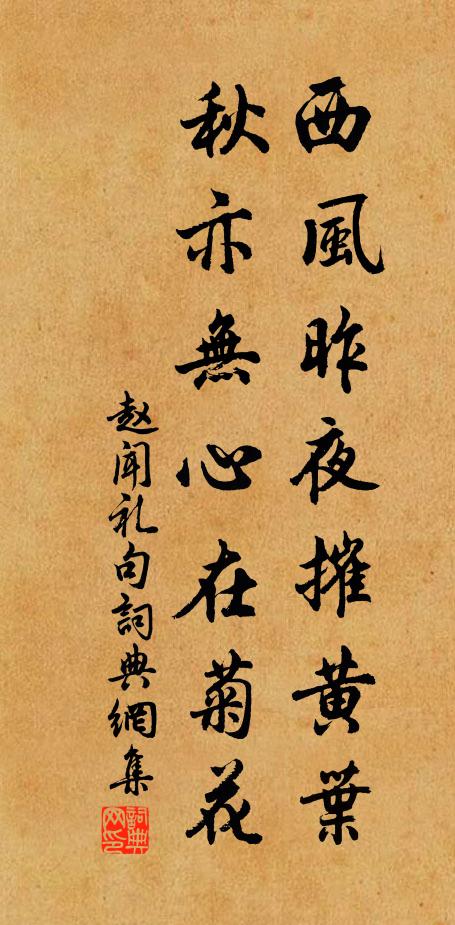 西風昨夜摧黃葉
秋亦無心在菊花
赵闻礼句詞典網集
詞典网印